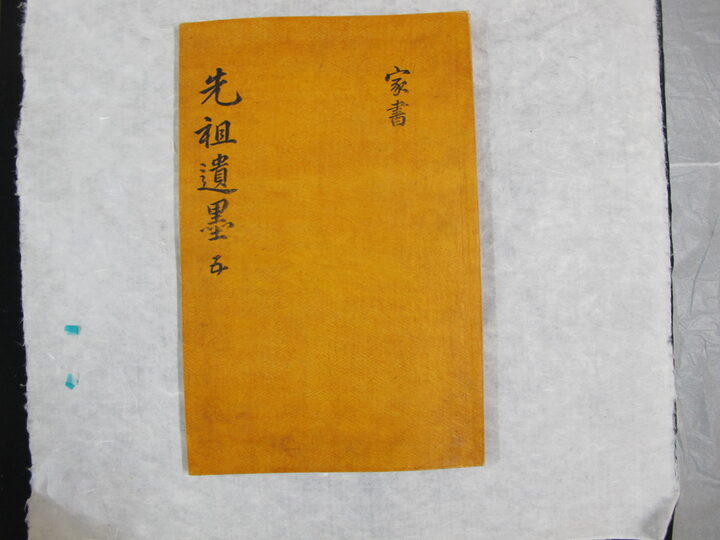 家書
先祖遺墨 五